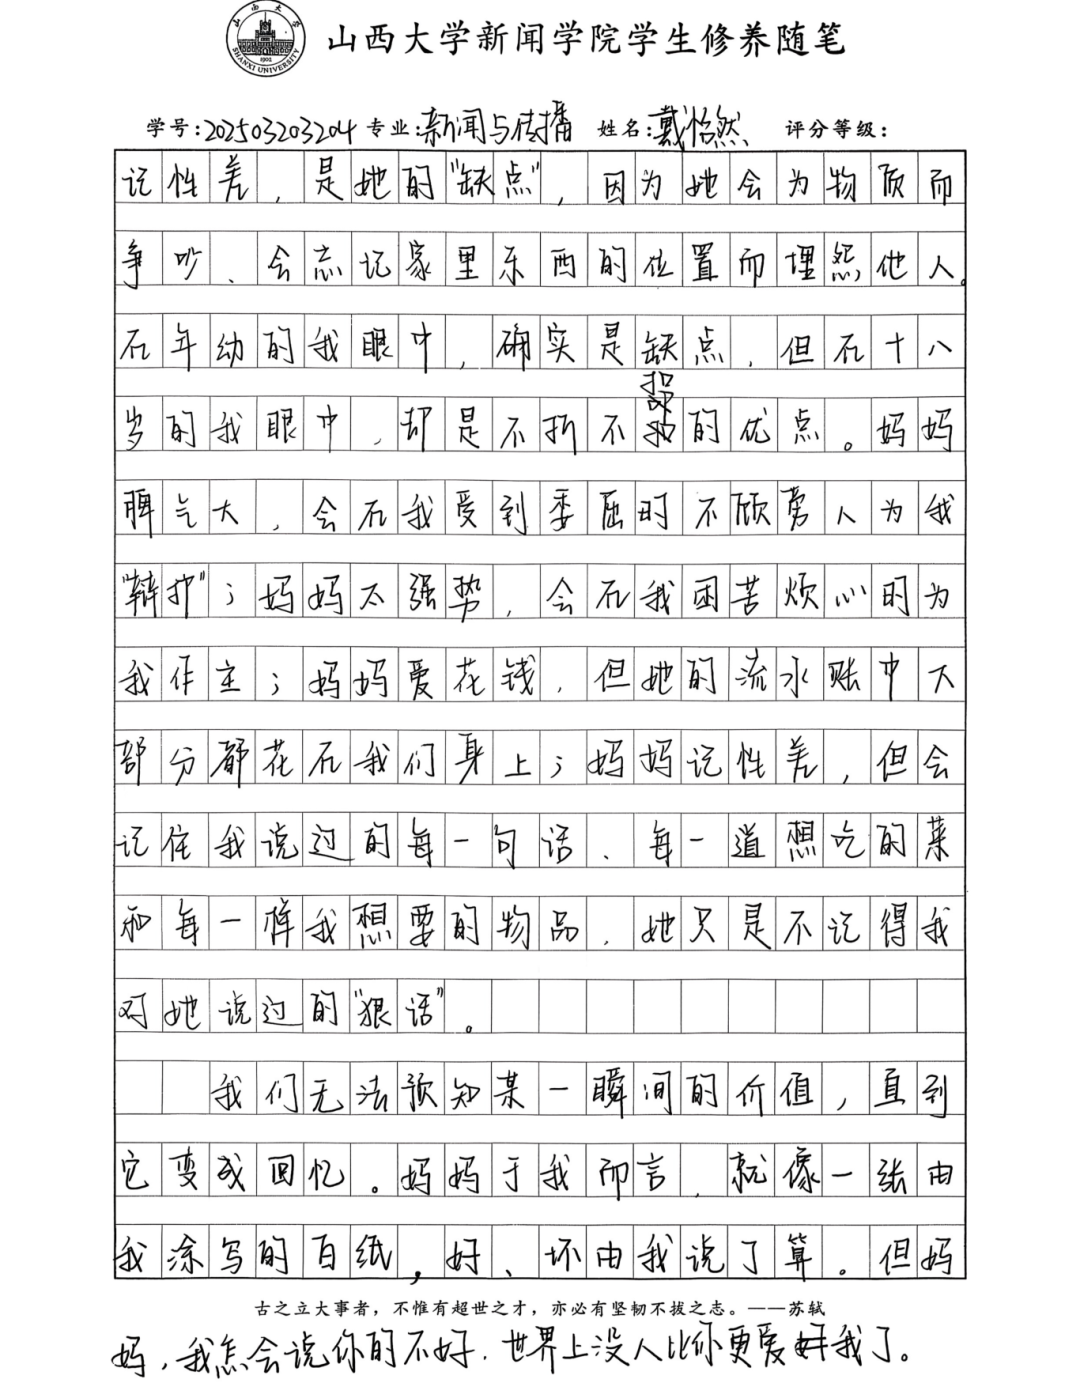 山西大学
SHANXI UNIVERSITY
1902
山西大学新闻学院学生修养随笔
学号:202503203204 专业:新闻与传播 姓名:戴怡然 评分等级:
记性差，是她的“缺点”，因为她会为物质而
争吵、会忘记家里东西的位置而埋怨他人。
在年幼的我眼中，确实是缺点，但在十八
岁的我眼中，却是不折不扣的优点。妈妈
脾气大，会在我受到委屈时不顾旁人为我
“辩护”；妈妈太强势，会在我困苦烦心时为
我作主；妈妈爱花钱，但她的流水账中大
部分都花在我们身上；妈妈记性差，但会
记住我说过的每一句话、每一道想吃的菜
和每一样我想要的物品，她只是不记得我
对她说过的“狠话”。
我们无法预知某一瞬间的价值，直到
它变成回忆。妈妈于我而言，就像一张由
我涂写的白纸，好、坏由我说了算。但妈
古之立大事者，不惟有超世之才，亦必有坚韧不拔之志。——苏轼
妈，我怎会说你的不好，世界上没人比你更爱我了。